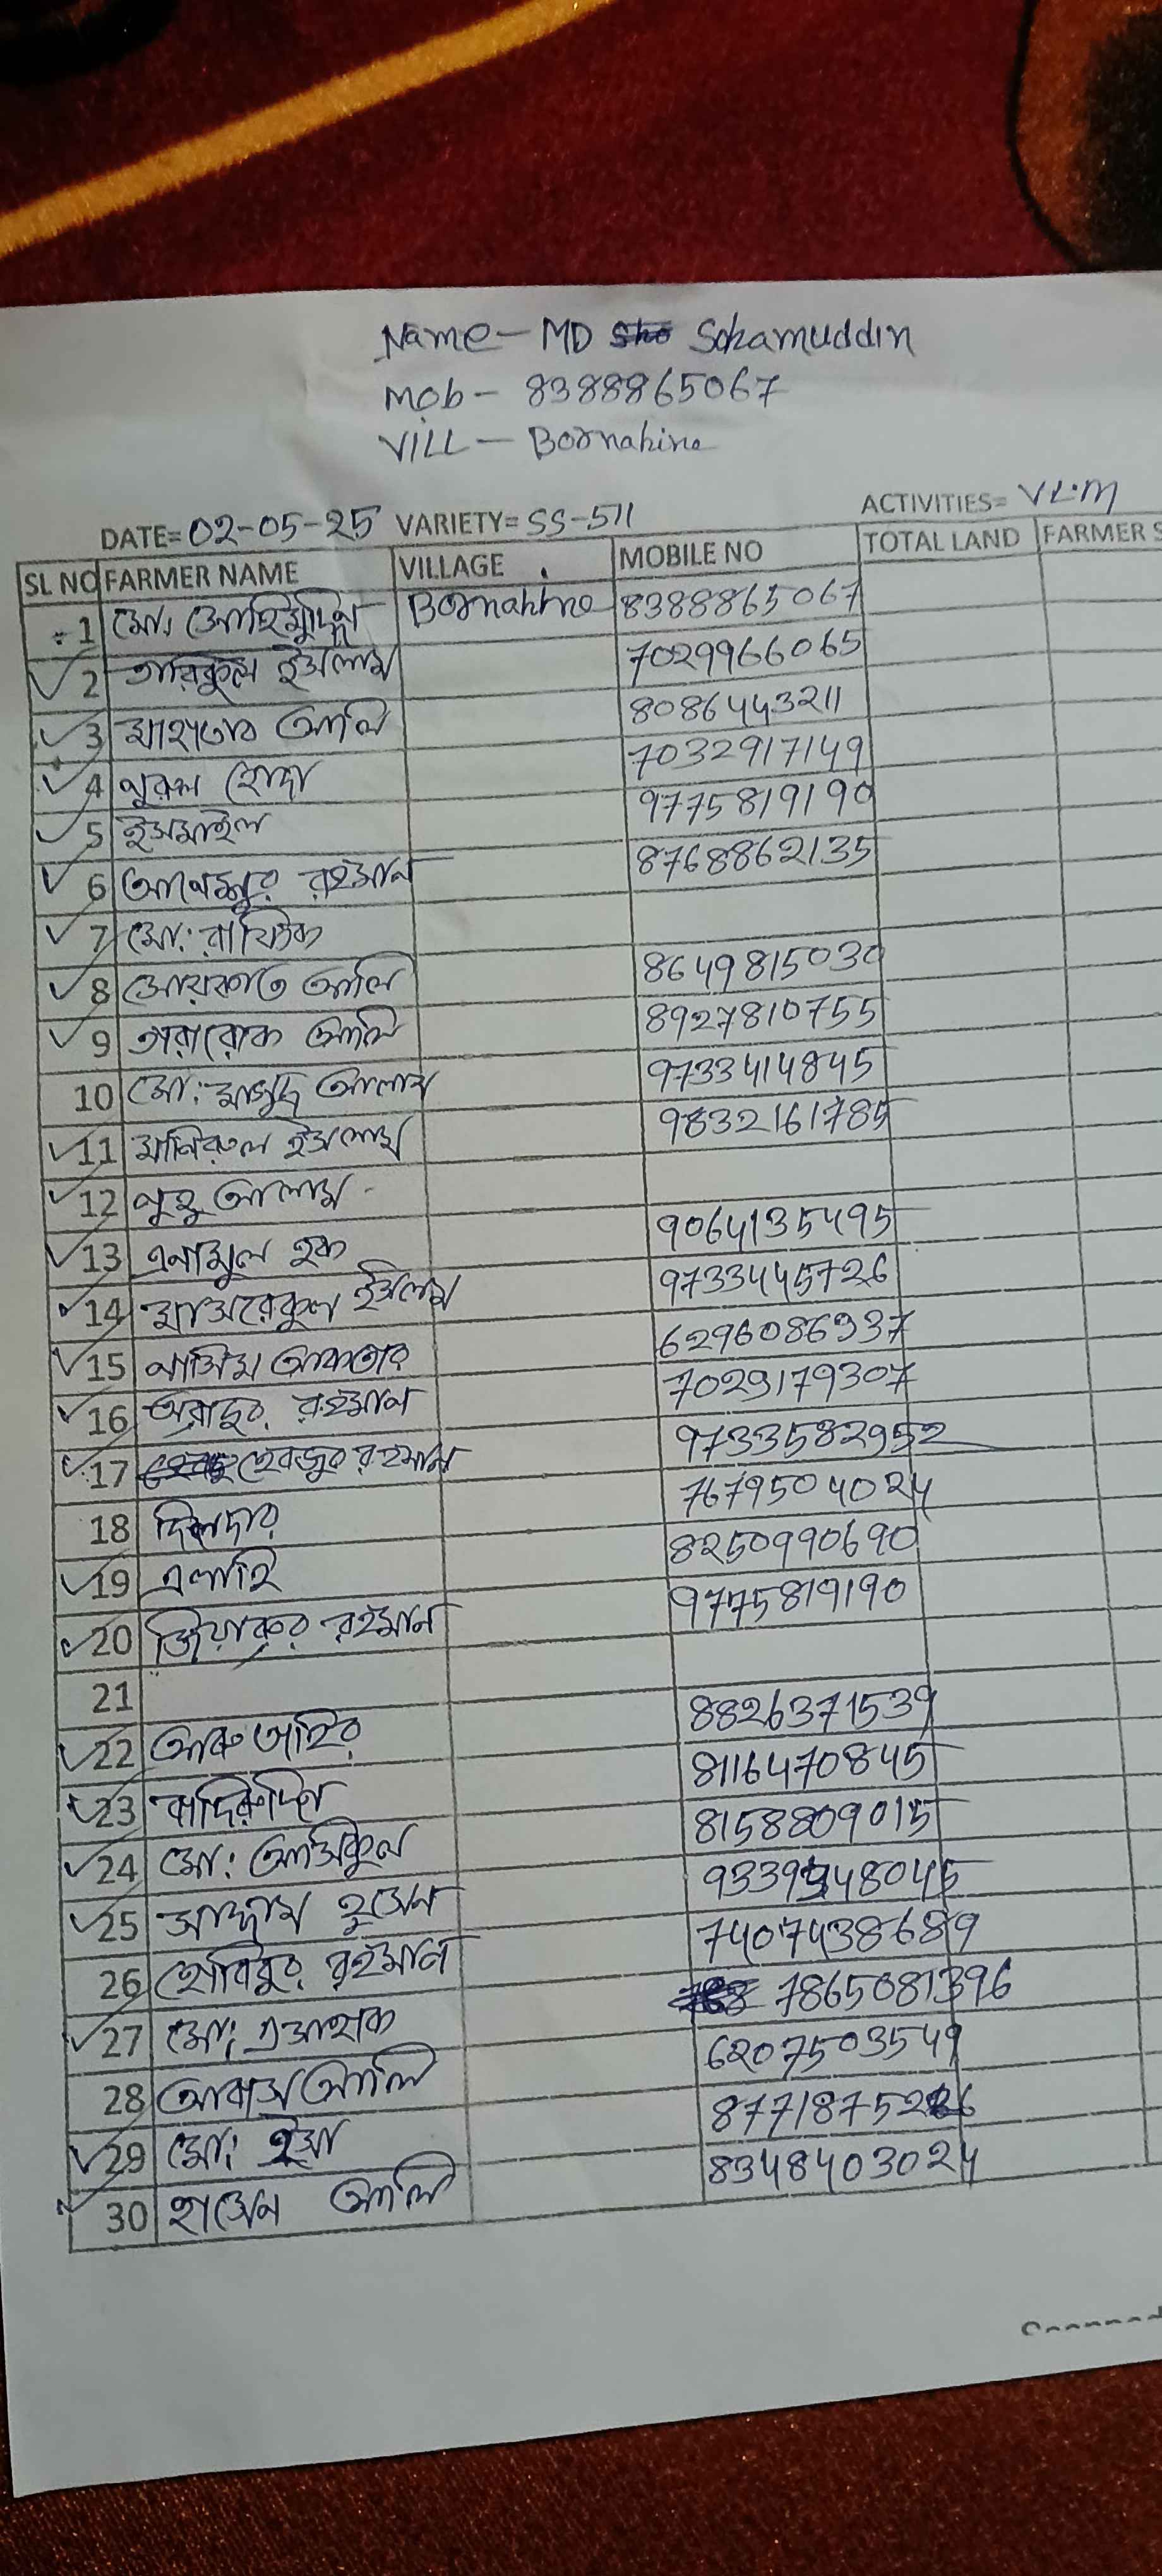 Name - MD Sohamuddin
Mob - 8388865067
VILL - Bornahine
DATE= 02-05-25 VARIETY= SS-511 ACTIVITIES= VLM
SL NO FARMER NAME VILLAGE MOBILE NO TOTAL LAND FARMER S
1 মো: Bornahine 8388865067
2 তারিকুল ইসলাম 7029966065
3 মাহাতাব আলি 8086443211
4 নুরুল হোদা 7032917149
5 ইসমাইল 9775819190
6 রহমান 8768862135
7 মো:
8 আলি 8649815030
9 আলি 8927810755
10 মো: মাসুদ আলাম 9733414845
11 মানিরুল ইসলাম 9832161785
12 নুহু আলাম
13 এনামুল হক 9064135495
14 ইসলাম 9733445726
15 নাসিম আকতার 6296086937
16 রহমান 7029179307
17 রহমান 9733582952
18 দিলদার 7679504024
19 এলাহি 8250990690
20 জিয়াবুর রহমান 9775819190
21
22 আবু তাহির 8826371539
23 8116470845
24 মো: আসিকুল 8158809015
25 সাদ্দাম হুসেন
26 হাবিবুর রহমান 7407438689
27 মো: এসাহাক 7865081396
28 আবাস আলি 6207503549
29 মো: ইসা
30 হাসেন আলি 8348403024